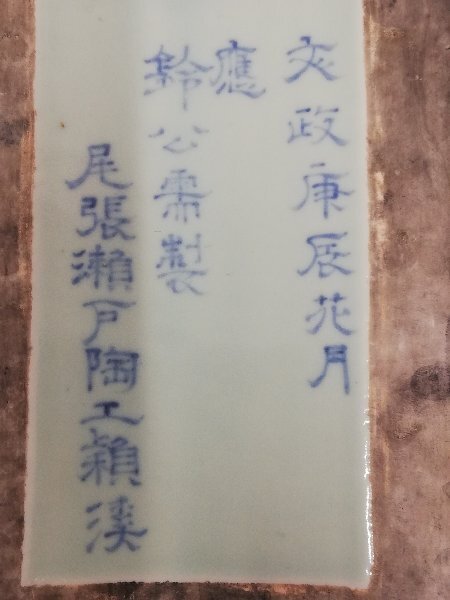 文政庚辰花月
應
鈴公需製
尾張瀬戸陶工穎渓